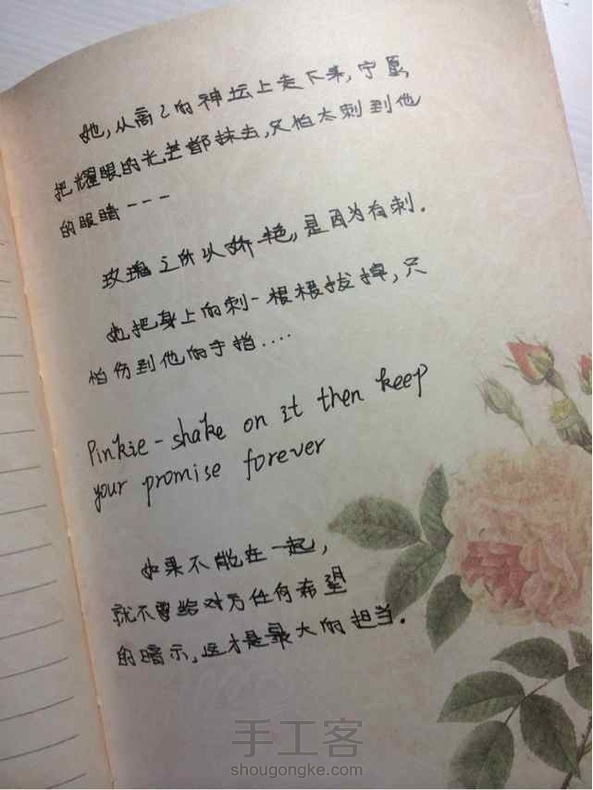 她,从高高的神坛上走下来,宁愿
把耀眼的光芒都抹去,只怕太刺到他
的眼睛---
玫瑰之所以娇艳,是因为有刺.
她把身上的刺一根根拔掉,只
怕伤到他的手指....
Pinkie-shake on it then keep
your promise forever
如果不能在一起,
就不要给对方任何希望
的暗示,这才是最大的担当.
手工客
shougongke.com